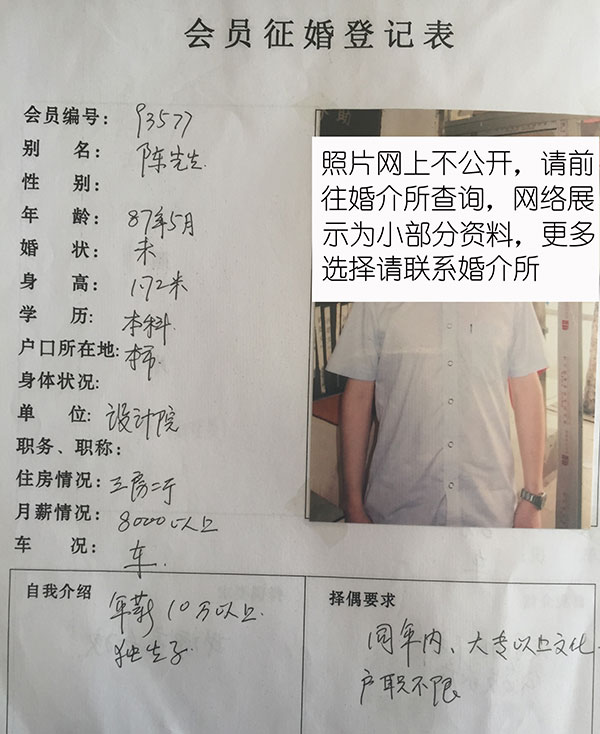 会员征婚登记表
会员编号: 93577
别 名: 陈先生
性 别:
年 龄: 87年5月
婚 状: 未
身 高: 1.72米
学 历: 本科
户口所在地: 本市
身体状况:
单 位: 设计院
职务、职称:
住房情况: 三房二厅
月薪情况: 8000以上
车 况: 车
照片网上不公开，请前
往婚介所查询，网络展
示为小部分资料，更多
选择请联系婚介所
自我介绍
年薪10万以上
独生子.
择偶要求
同年内、大专以上文化.
户职不限